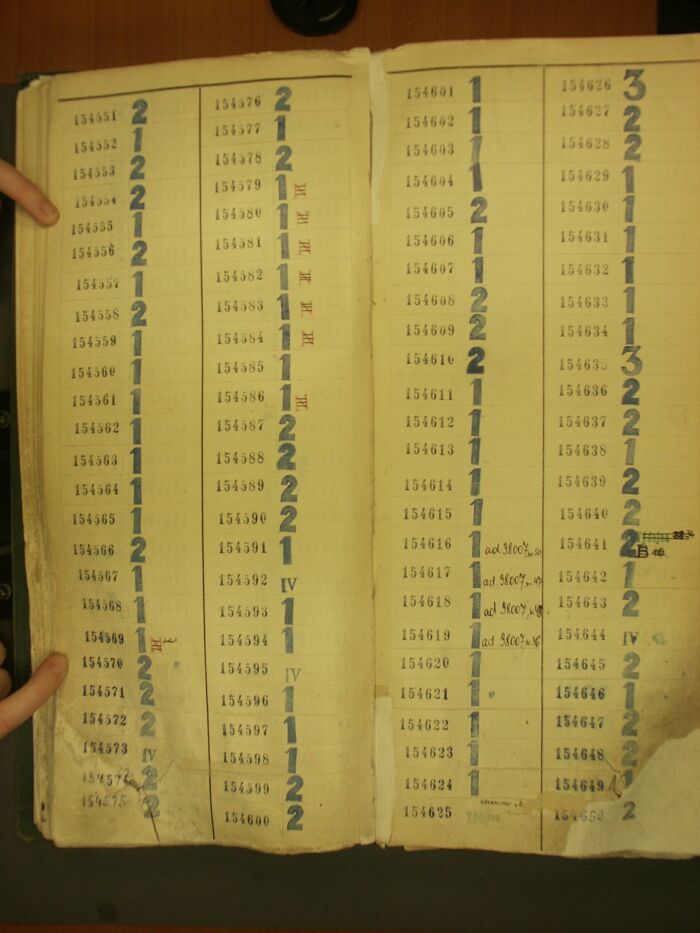 154551 2
154552 1
154553 2
154554 2
154555 1
154556 2
154557 1
154558 2
154559 1
154560 1
154561 1
154562 1
154563 1
154564 1
154565 1
154566 2
154567 1
154568 1
154569 1
154570 2
154571 2
154572 2
154573 IV
154574 2
154575 2
154576 2
154577 1
154578 2
154579 1
154580 1
154581 1
154582 1
154583 1
154584 1
154585 1
154586 1
154587 2
154588 2
154589 2
154590 2
154591 1
154592 IV
154593 1
154594 1
154595 IV
154596 1
154597 1
154598 1
154599 2
154600 2
154601 1
154602 1
154603 1
154604 1
154605 2
154606 1
154607 1
154608 2
154609 2
154610 2
154611 1
154612 1
154613 1
154614 1
154615 1
154616 1 ad 98007
154617 1 ad 98007
154618 1 ad 98007
154619 1 ad 98007
154620 1
154621 1
154622 1
154623 1
154624 1
154625
154626 3
154627 2
154628 2
154629 1
154630 1
154631 1
154632 1
154633 1
154634 1
154635 3
154636 2
154637 2
154638 1
154639 2
154640 2
154641 2
154642 1
154643 2
154644 IV
154645 2
154646 1
154647 2
154648 2
154649 1
154650 2